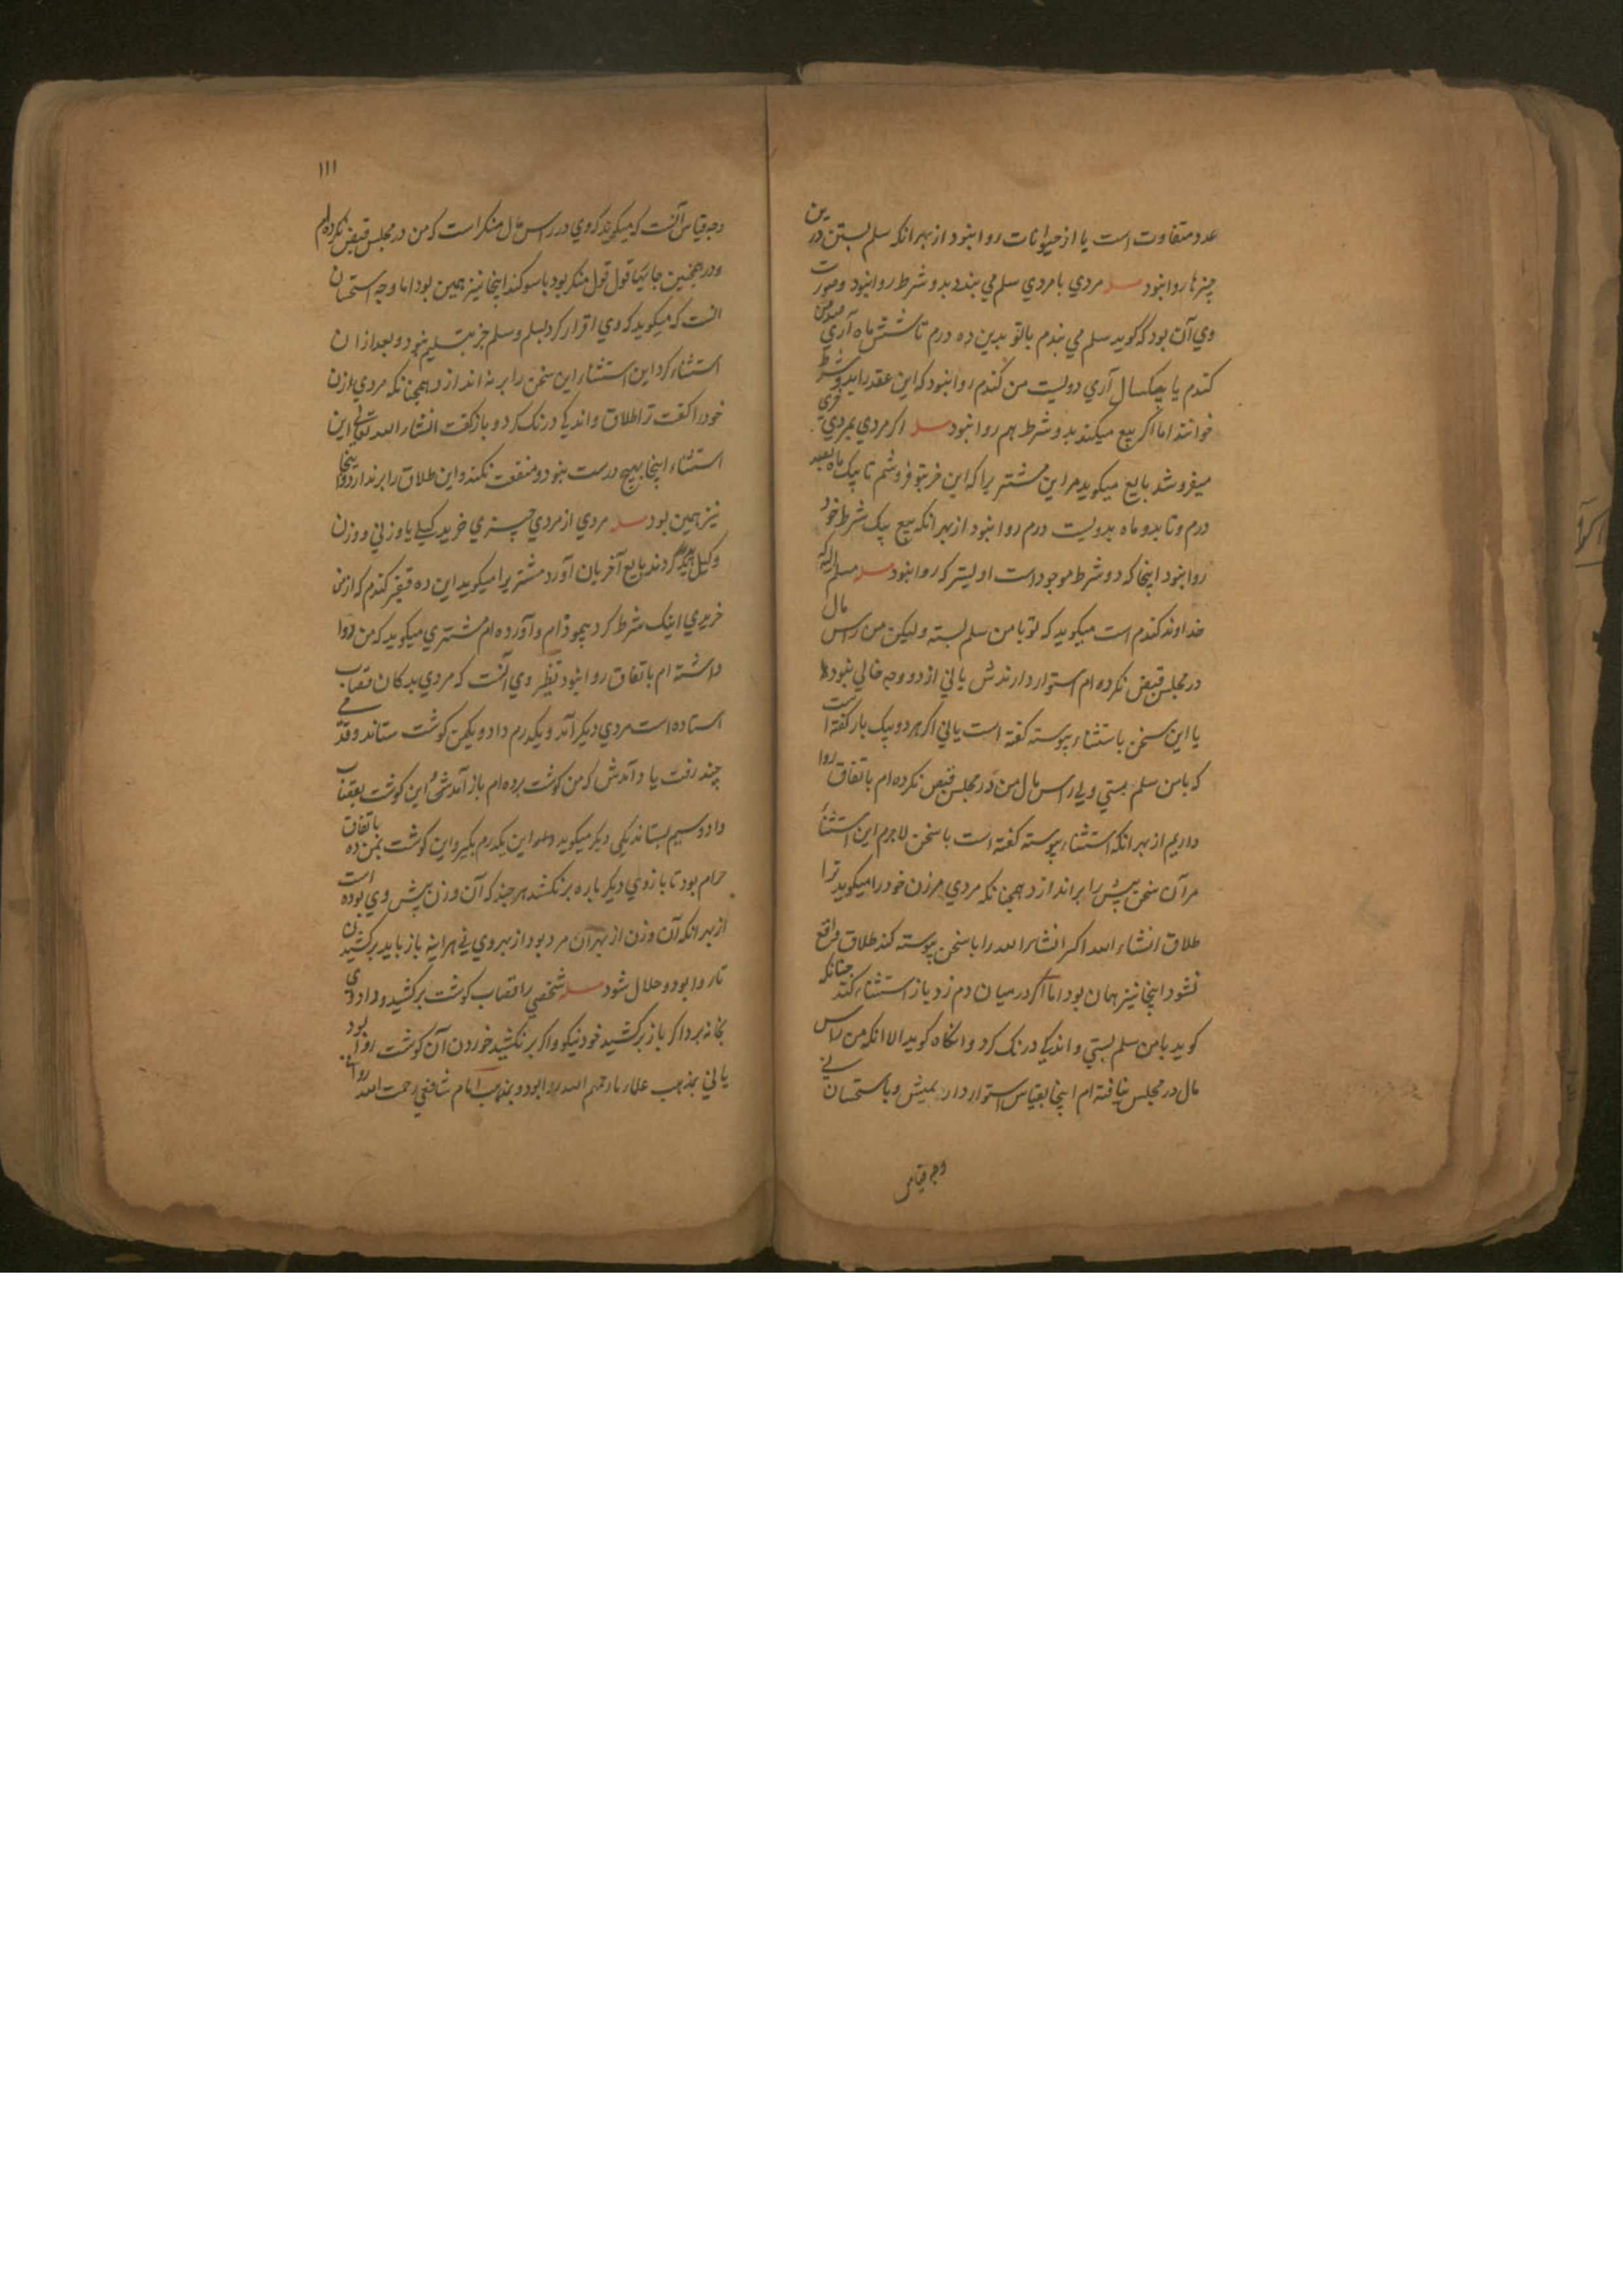 عدد متفاوت است یا از حیوانات روا نبود از بهر انکه سلم بستن درین
چیزها روا نبود مسله مردي با مردي سلم مي بندد بدو شرط روا نبود وصورت
وي آن بود که کوید سلم مي بندم با تو بدین ده درم تا شش ماه آري صد من
کندم یا بیکسال آري دویست من کندم روا نبود که این عقد را بدو شرط
خوانند اما اکر بیع میکند بدو شرط هم روا نبود مسله اکر مردي بمردي خري
میفروشد بایع میکوید مر این مشتریرا که این خر بتو فروشم تا یک ماه بصد
درم و تا بدو ماه بدویست درم روا نبود از بهر انکه بیع بیک شرط خود
روا نبود اینجا که دو شرط موجود است اولیتر که روا نبود مسله مسلم الیه که
خداوند کندم است میکوید که تو با من سلم بسته ولیکن من راس مال
در مجلس قبض نکرده ام استوار دارندش یا ني از دو وجه خالي نبود
یا این سخن باستثناء پیوسته کفته است یا ني اکر هر دو بیک بار کفته است
که با من سلم بستي ولی راس مال من در مجلس قبض نکرده ام باتفاق روا
داریم از بهر انکه استثناء پیوسته کفته است با سخن لاجرم این استثناء
مر آن سخن پیش را براندازد همچنانکه مردي مر زن خود را میکوید ترا
طلاق انشاء الله اکر انشاء الله را با سخن پیوسته کند طلاق واقع
نشود اینجا نیز همان بود اما اکر در میان دم زد باز استثناء کند چنانکه
کوید با من سلم بستي و اندکي درنک کرد و انکاه کوید الا انکه من راس
مال در مجلس نیافته ام اینجا بقیاس استوار دارندش و باستحسان ني
وجه قیاس
١١١
وجه قیاس آنست که میکوید که وي در راس مال منکر است که من در مجلس قبض نکرده ام
ودر همچنین جائیها قول قول منکر بود با سوکند اینجا نیز همین بود اما وجه استحسان
انست که میکوید که وي اقرار کرد بسلم وسلم جز بتسلیم نبود و بعد از ان
استثناء کرد این استثناء این سخن را بر نه اندازد همچنانکه مردي مر زن
خود را کفت ترا طلاق و اندکي درنک کرد و باز کفت انشاء الله تعالي این
استثناء اینجا بهیچ درست نبود و منفعت نکند و این طلاق را بر ندارد و اینجا
نیز همین بود مسله مردي از مردي چیزي خرید کیلي یا وزني و وزن
وکیل کردند بایع آخریان آورد مشتریرا میکوید این ده قفیز کندم که از من
خریدي اینک شرط کرد پیموده ام و آورده ام مشتري میکوید که من روا
داشته ام باتفاق روا نبود نظیر وي آنست که مردي بدکان قصاب
استاده است مردي دیکر آمد و یکدرم داد و یکمن کوشت ستاند و قدمي
چند رفت یاد آمدش که من کوشت برده ام باز آمد این کوشت بقصاب
داد و سیم بستاند یکی دیکر میکوید این یکدرم بکیر و این کوشت بمن ده باتفاق
حرام بود تا بازوي دیکر باره بر نکشد هر چند که آن وزن پیش وي بوده است
از بهر انکه آن وزن از بهر آن مرد بود از بهر وي ني هراینه باز باید برکشیدن
تا روا بود و حلال شود مسله شخصي را قصاب کوشت برکشید و داد وي
بخانه برد اکر باز برکشید خود نیکو و اکر بر نکشید خوردن آن کوشت روا بود
یا ني بمذهب علماء ما رحمهم الله روا بود و بمذهب امام شافعي رحمت الله روا ني